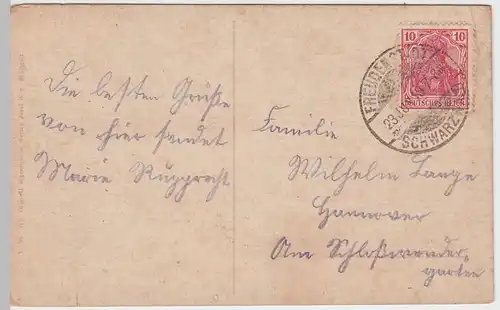 Die besten Grüße
von hier sendet
Marie Rupprecht
10 10
DEUTSCHES REICH
FREUDENST
SCHWARZ
Familie
Wilhelm Lange
Hannover
Am
garten